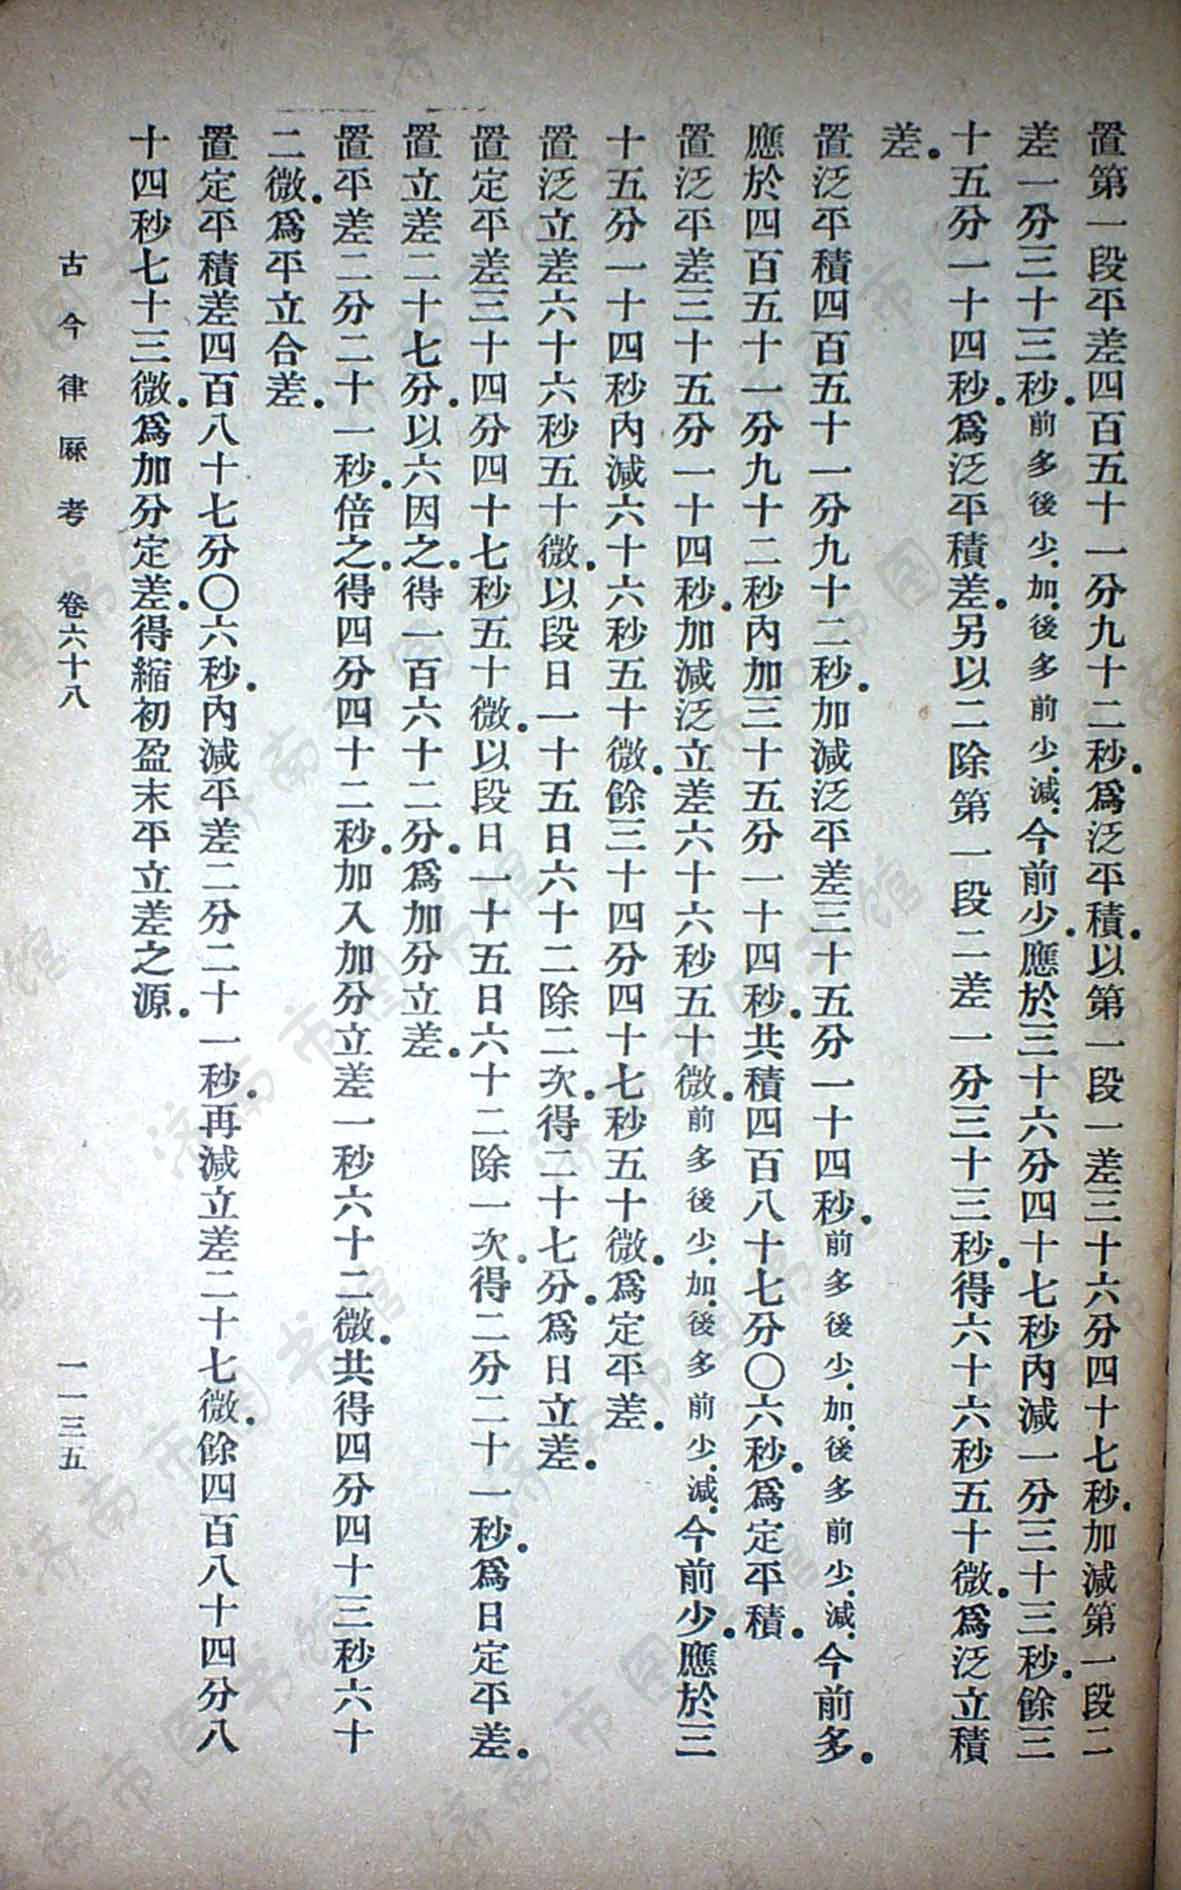 置第一段平差四百五十一分九十二秒.爲泛平積.以第一段一差三十六分四十七秒.加減第一段二
差一分三十三秒.前多後少.加.後多前少.減.今前少.應於三十六分四十七秒內減一分三十三秒.餘三
十五分一十四秒.爲泛平積差.另以二除第一段二差一分三十三秒.得六十六秒五十微.爲泛立積
差.
置泛平積四百五十一分九十二秒.加減泛平差三十五分一十四秒.前多後少.加.後多前少.減.今前多.
應於四百五十一分九十二秒內加三十五分一十四秒.共積四百八十七分〇六秒.爲定平積.
置泛平差三十五分一十四秒.加減泛立差六十六秒五十微.前多後少.加.後多前少.減.今前少.應於三
十五分一十四秒內減六十六秒五十微.餘三十四分四十七秒五十微.爲定平差.
置泛立差六十六秒五十微.以段日一十五日六十二除二次.得二十七分.爲日立差.
置定平差三十四分四十七秒五十微.以段日一十五日六十二除一次.得二分二十一秒.爲日定平差.
置立差二十七分.以六因之.得一百六十二分.爲加分立差.
置平差二分二十一秒.倍之.得四分四十二秒.加入加分立差一秒六十二微.共得四分四十三秒六十
二微.爲平立合差.
置定平積差四百八十七分〇六秒.內減平差二分二十一秒.再減立差二十七微.餘四百八十四分八
十四秒七十三微.爲加分定差.得縮初盈末平立差之源.
古今律厤考 卷六十八 一一三五